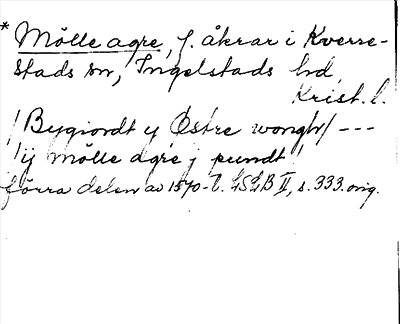 * Mölle agre, f. åkrar i Kverre-
stads sn, Ingelstads hd,
Krist. l.
/Bygiordt y Østre wongh/ ---
"ij mölle agre j pundt"
förra delen av 1570-t. LSLB II, s. 333. orig.